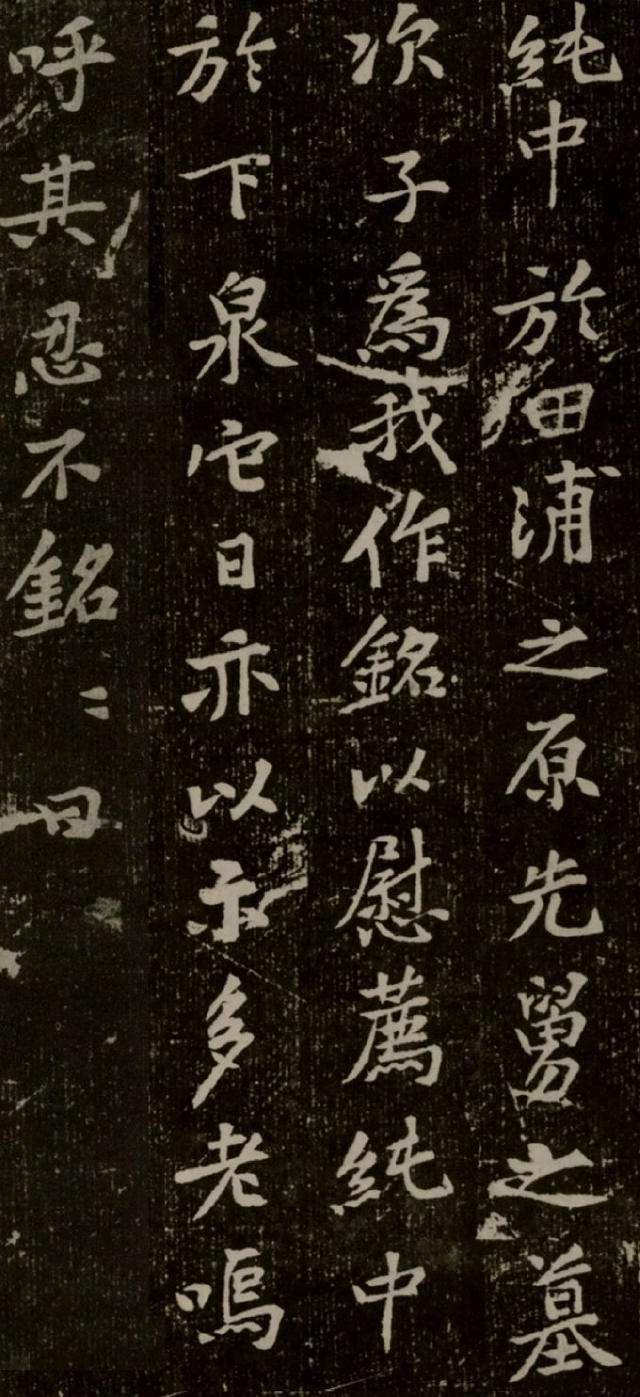 純中於田浦之原先舅之墓
次子爲我作銘以慰薦純中
於下泉它日亦以示多老嗚
呼其忍不銘〻曰